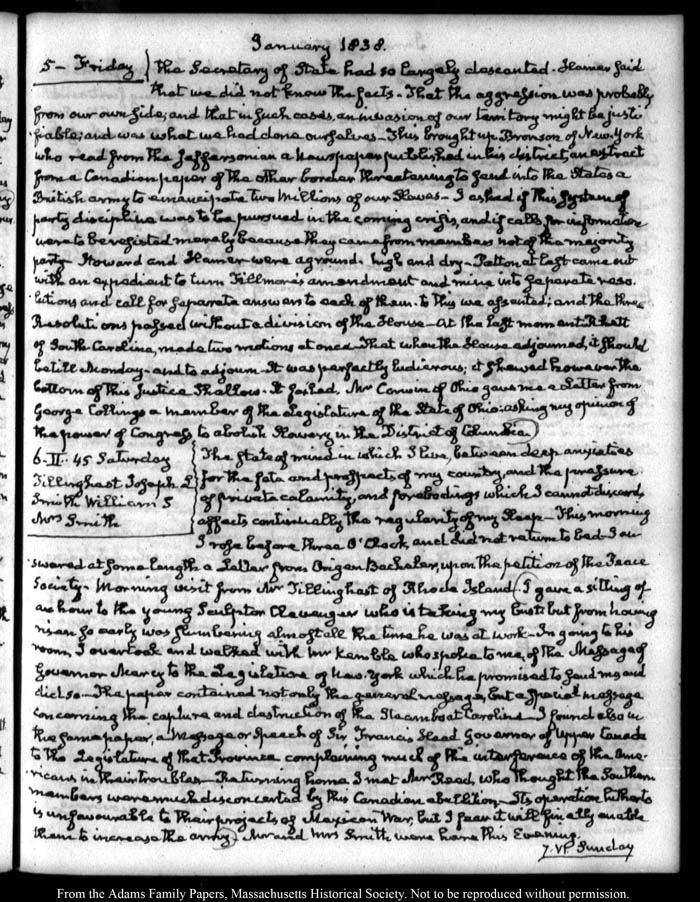 January 1838.
5 - Friday } the Secretary of State had so largely descanted. Hamer said
that we did not know the facts - That the aggression was probably
from our own side; and that in such cases, an invasion of our territory might be justi
fiable; and was what we had done ourselves - This brought up Bronson of New York
who read from the Jeffersonian a Newspaper published in his district, an extract
from a Canadian paper of the other border threatening to send into the States a
British army to emancipate two Millions of our Slaves - I asked if this System of
party discipline was to be pursued in the coming crisis, and if calls for information
were to be resisted merely because they came from members not of the majority
party - Howard and Hamer were aground - high and dry - Patton at last came out
with an expedient to turn Fillmore's amendment and mine into separate reso
lutions and call for separate answers to each of them. to this we assented; and the three
Resolutions passed without a division of the House - At the last moment Rhett
of South Carolina, made two motions at once - That when the House adjourned, it should
be till Monday - and to adjourn - It was perfectly ludicrous; it shewed however the
bottom of this Justice Shallow - It failed. Mr Corwin of Ohio gave me a Letter from
George Collings a member of the Legislature of the State of Ohio: asking my opinion of
the power of Congress to abolish Slavery in the District of Columbia
6. II. 45 Saturday
Tillinghast Joseph L
Smith William S
Mrs Smith
The state of mind in which I live, between deep anxieties
for the fate and prospects of my country, and the pressure
of private calamity, and forebodings which I cannot discard,
affects continually the regularity of my Sleep - This morning
I rose before three O'Clock, and did not return to bed. I an
swered at some length a Letter from Origen Bacheler, upon the petition of the Peace
Society - Morning visit from Mr Tillinghast of Rhode Island. I gave a sitting of
an hour to the young Sculptor Clevenger who is taking my bust: but from having
risen so early was slumbering almost all the time he was at work - In going to his
room, I overtook and walked with Mr Kemble who spoke to me, of the Message of
Governor Marcy to the Legislature of New York which he promised to send me, and
did so - The paper contained not only the general message, but a special message
concerning the capture and destruction of the Steamboat Caroline - I found also in
the same paper, a Message or Speech of Sir Francis Head Governor of Upper Canada
to the Legislature of that Province complaining much of the interference of the Ame
ricans in their troubles - Returning home I met Mr Reed, who thought the Southern
members were much disconcerted by this Canadian ebullition - Its operation hitherto
is unfavourable to their projects of Mexican War, but I fear it will finally enable
them to increase the army. Mr and Mrs Smith were here this Evening.
7. VI. Sunday
From the Adams Family Papers, Massachusetts Historical Society. Not to be reproduced without permission.